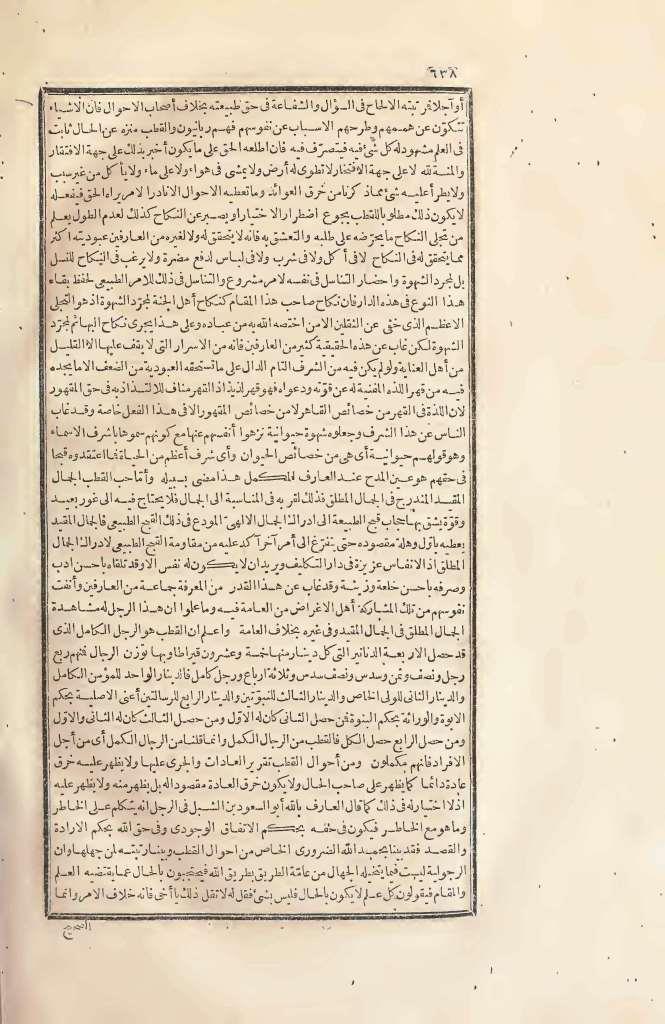 ٦٣٨
أو آجلا فمرتبته الالحاح فى السؤال والشفاعة فى حق طبيعته بخلاف أصحاب الاحوال فان الاشياء
تتكون عن هممهم وطرحهم الاسباب عن نفوسهم فهم ربانيون والقطب منزه عن الحال ثابت
فى العلم مشهود له كل شئ فيه فيتصرف فيه فان اطلعه الحق على ما يكون أخبر بذلك على جهة الافتقار
والمنة لله لا على جهة الافتخار لا تطوى له أرض ولا يمشى فى هواء ولا على ماء ولا يأكل من غير سبب
ولا يطرأ عليه شئ مما ذكرنا من خرق العوائد وما تعطيه الاحوال الا نادرا لامر يراه الحق فيفعله
لا يكون ذلك مطلوبا للقطب يجوع اضطرارا لا اختيارا ويصبر عن النكاح كذلك لعدم الطول يعلم
من تجلى النكاح ما يحرّضه على طلبه والتعشق به فانه لا يتحقق له ولا لغيره من العارفين عبوديته اكثر
مما يتحقق له فى النكاح لا فى أكل ولا فى شرب ولا فى لباس لدفع مضرة ولا يرغب فى النكاح للنسل
بل لمجرد الشهوة واحضار التناسل فى نفسه لامر مشروع والتناسل فى ذلك للامر الطبيعى لحفظ بقاء
هذا النوع فى هذه الدار فان نكاح صاحب هذا المقام كنكاح أهل الجنة لمجرّد الشهوة اذ هو التجلى
الاعظم الذى خفى عن الثقلين الا من اختصه الله به من عباده وعلى هذا يجرى نكاح البهائم لمجرّد
الشهوة لكن غاب عن هذه الحقيقة كثير من العارفين فانه من الاسرار التى لا يقف عليها الا القليل
من أهل العناية ولو لم يكن فيه من الشرف التام الدال على ما تستحقه العبودية من الضعف الا ما يجده
فيه من قهر اللذة المفنية له عن قوته ودعواه فهو قهر لذيذ اذ القهر مناف للالتذاذ به فى حق المقهور
لان اللذة فى القهر من خصائص القاهر لا من خصائص المقهور الا فى هذا الفعل خاصة وقد غاب
الناس عن هذا الشرف وجعلوه شهوة حيوانية نزهوا أنفسهم عنها مع كونهم سموها باشرف الاسماء
وهو قولهم حيوانية أى هى من خصائص الحيوان وأى شرف أعظم من الحياة فما اعتقدوه قبحا
فى حقهم هو عين المدح عند العارف المكمل هذا مضى بسبيله وأما حب القطب الجمال
المقيد المندرج فى الجمال المطلق فذلك لقربه فى المناسبة الى الجمال فلا يحتاج فيه الى غور بعيد
وقوّة يشق بها حجاب قبح الطبيعة الى ادراك الجمال الالهى المودع فى ذلك القبح الطبيعى فالجمال المقيد
يعطيه باول وهلة مقصوده حتى يتفرّغ الى أمر آخر آكد عليه من مقاومة القبح الطبيعى لادراك الجمال
المطلق اذ الانفاس عزيزة فى دار التكليف ويريد ان لا يكون له نفس الا وقد تلقاه باحسن ادب
وصرفه باحسن خلعة وزينة وقد غاب عن هذا القدر من المعرفة جماعة من العارفين وأنفت
نفوسهم من تلك المشاركة أهل الاغراض من العامة فيه وما علموا ان هذا الرجل له مشاهدة
الجمال المطلق فى الجمال المقيد وفى غيره بخلاف العامة واعلم ان القطب هو الرجل الكامل الذى
قد حصل الاربعة الدنانير التى كل دينار منها خمسة وعشرون قيراطا وبها توزن الرجال فمنهم ربع
رجل ونصف وثمن وسدس ونصف سدس وثلاثة ارباع ورجل كامل فالدينار الواحد للمؤمن الكامل
والدينار الثانى للولى الخاص والدينار الثالث للنبوّتين والدينار الرابع للرسالتين أعنى الاصلية بحكم
الابوة والوراثة بحكم البنوة فمن حصل الثانى كان له الاول ومن حصل الثالث كان له الثانى والاول
ومن حصل الرابع حصل الكل فالقطب من الرجال الكمل وانما قلنا من الرجال الكمل أى من أجل
الافراد فانهم مكملون ومن أحوال القطب تقرير العادات والجرى عليها ولا يظهر عليه خرق
عادة دائما كما يظهر على صاحب الحال ولا يكون خرق العادة مقصودا له بل يظهر منه ولا يظهر عليه
اذ لا اختيار له فى ذلك كما قال العارف بالله أبو السعود بن الشبل فى الرجل انه يتكلم على الخاطر
وما هو مع الخاطر فيكون فى حقه بحكم الاتفاق الوجودى وفى حق الله بحكم الارادة
والقصد فقد بينا بحمد الله الضرورى الخاص من احوال القطب وبينا رتبته لمن جهلها وان
الرجولية ليست فيما يتخيله الجهال من عامّة الطريق بطريق الله فيحتجبون بالحال عما يقتضيه العلم
والمقام فيقولون كل علم لا يكون بالحال فليس بشئ فقل له لا تقل ذلك يا أخى فانه خلاف الامر وانما
الصحيح